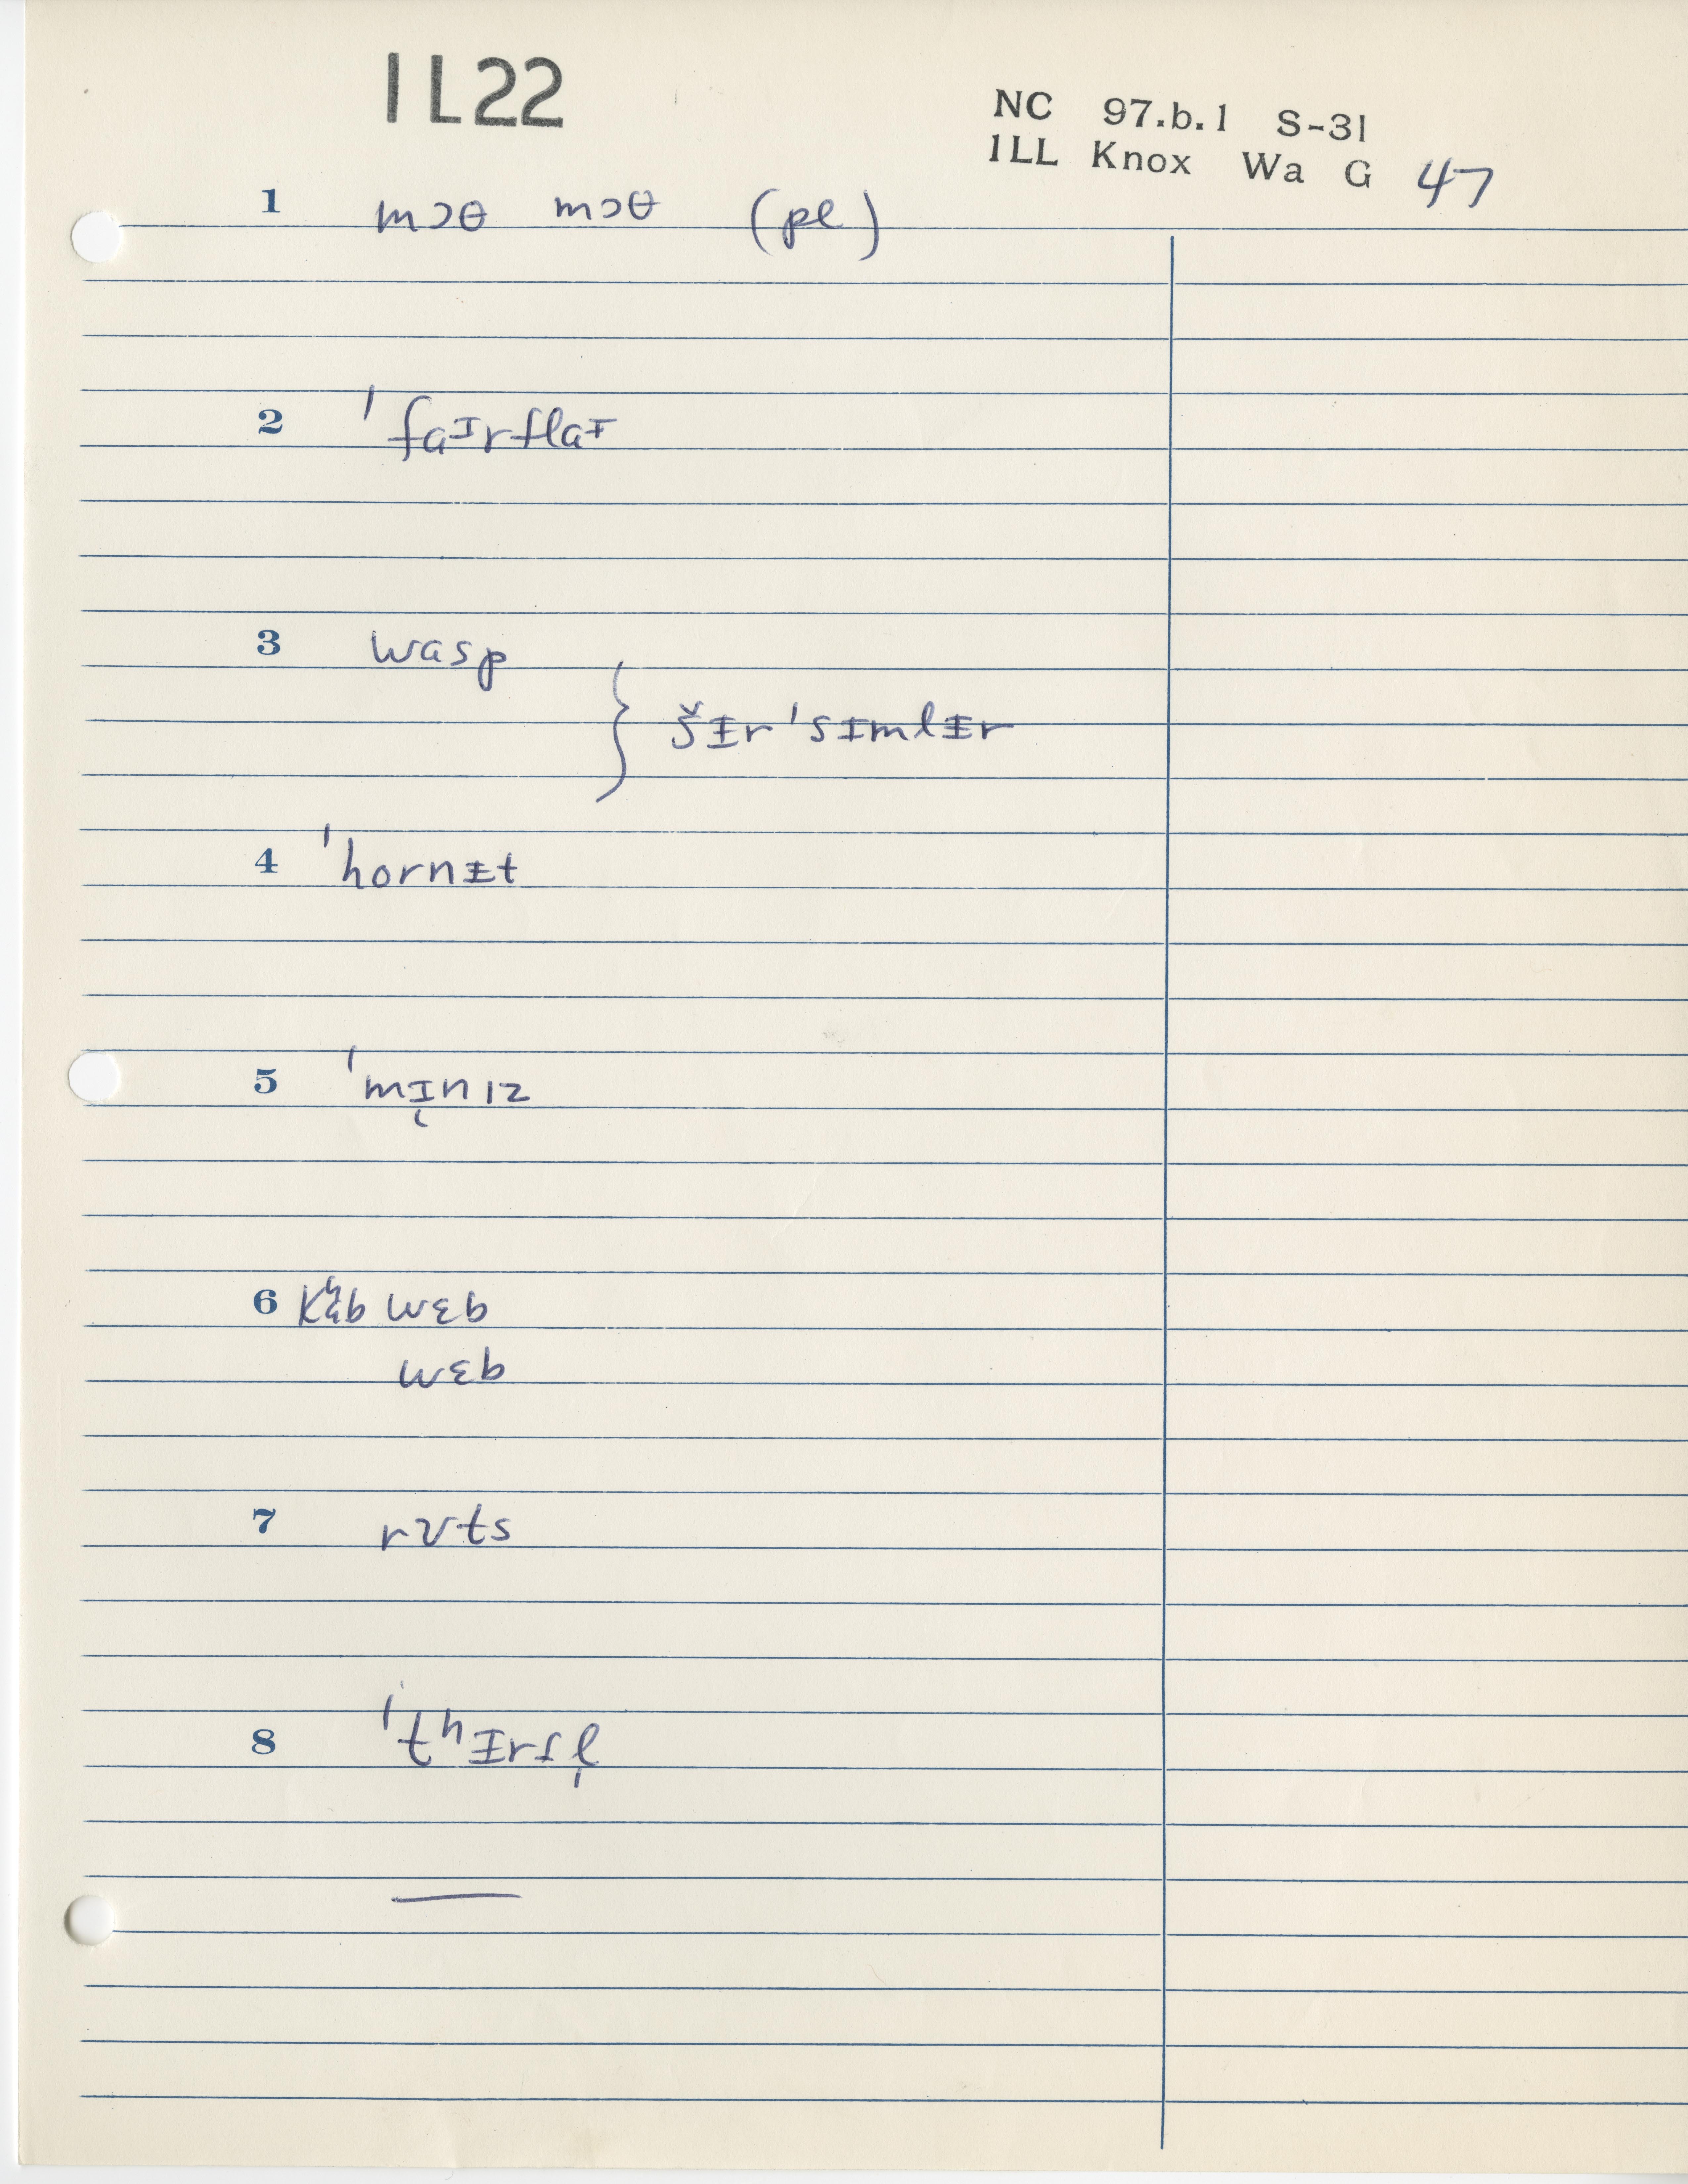 1L22
NC 97.b.1 S-31
ILL Knox Wa G 47
1 mɔθ mɔθ (pl)
2 ˈfaɪrflaɪ
3 wasp
} šᵻr ˈsɪmlᵻr
4 ˈhornᵻt
5 ˈmɪ̨nɪz
6 kʰɛb wɛb
wɛb
7 rʊts
8 ˈtʰᵻrfl̩